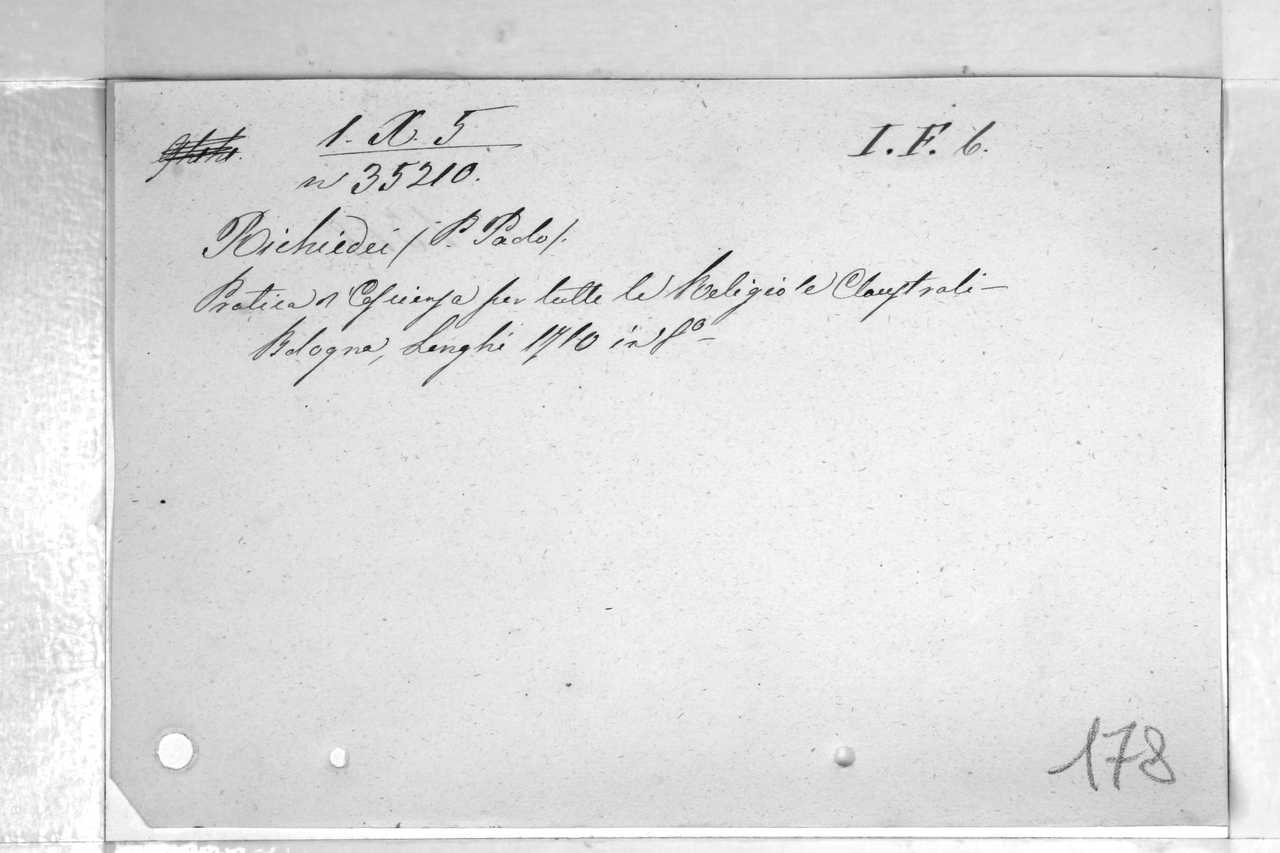 1. X. 5 I. F. 6.
n 35210.
Richiedei (P. Paolo).
Pratica di Coscienza per tutte le Religiose Claustrali —
Bologna, Longhi 1710 in 8º —
178